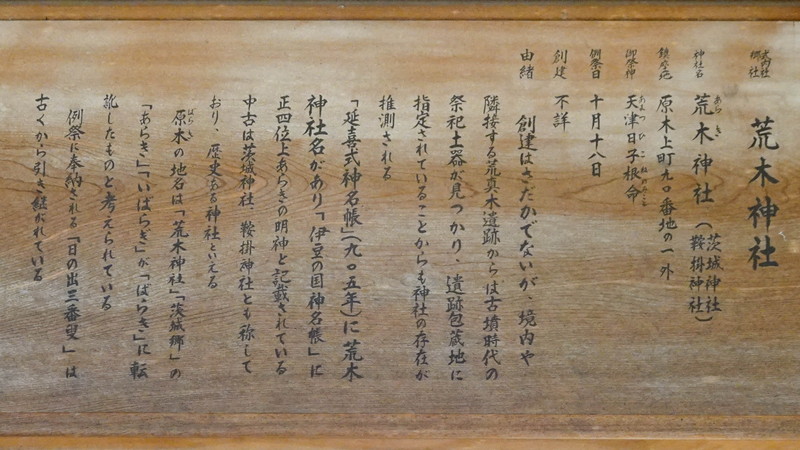 式内社 郷社 荒木神社
神社名 荒木神社（茨城神社 鞍掛神社）
あら き
鎮座地 原木上町九〇番地の一外
御祭神 天津日子根命
あまつ ひこ ねのみこと
例祭日 十月十八日
創建 不詳
由緒 創建はさだかでないが、境内や
隣接する荒真木遺跡からは古墳時代の
祭祀土器が見つかり、遺跡包蔵地に
指定されていることからも神社の存在が
推測される
「延喜式神名帳」（九〇五年）に荒木
神社名があり「伊豆の国神名帳」に
正四位上あらきの明神と記載されている
中古は茨城神社 鞍掛神社とも称して
おり、歴史ある神社といえる
原木の地名は「荒木神社」「茨城郷」の
ばらき
「あらき」「いばらき」が「ばらき」に転
訛したものと考えられている
例祭に奉納される「日の出三番叟」は
古くから引き継がれている